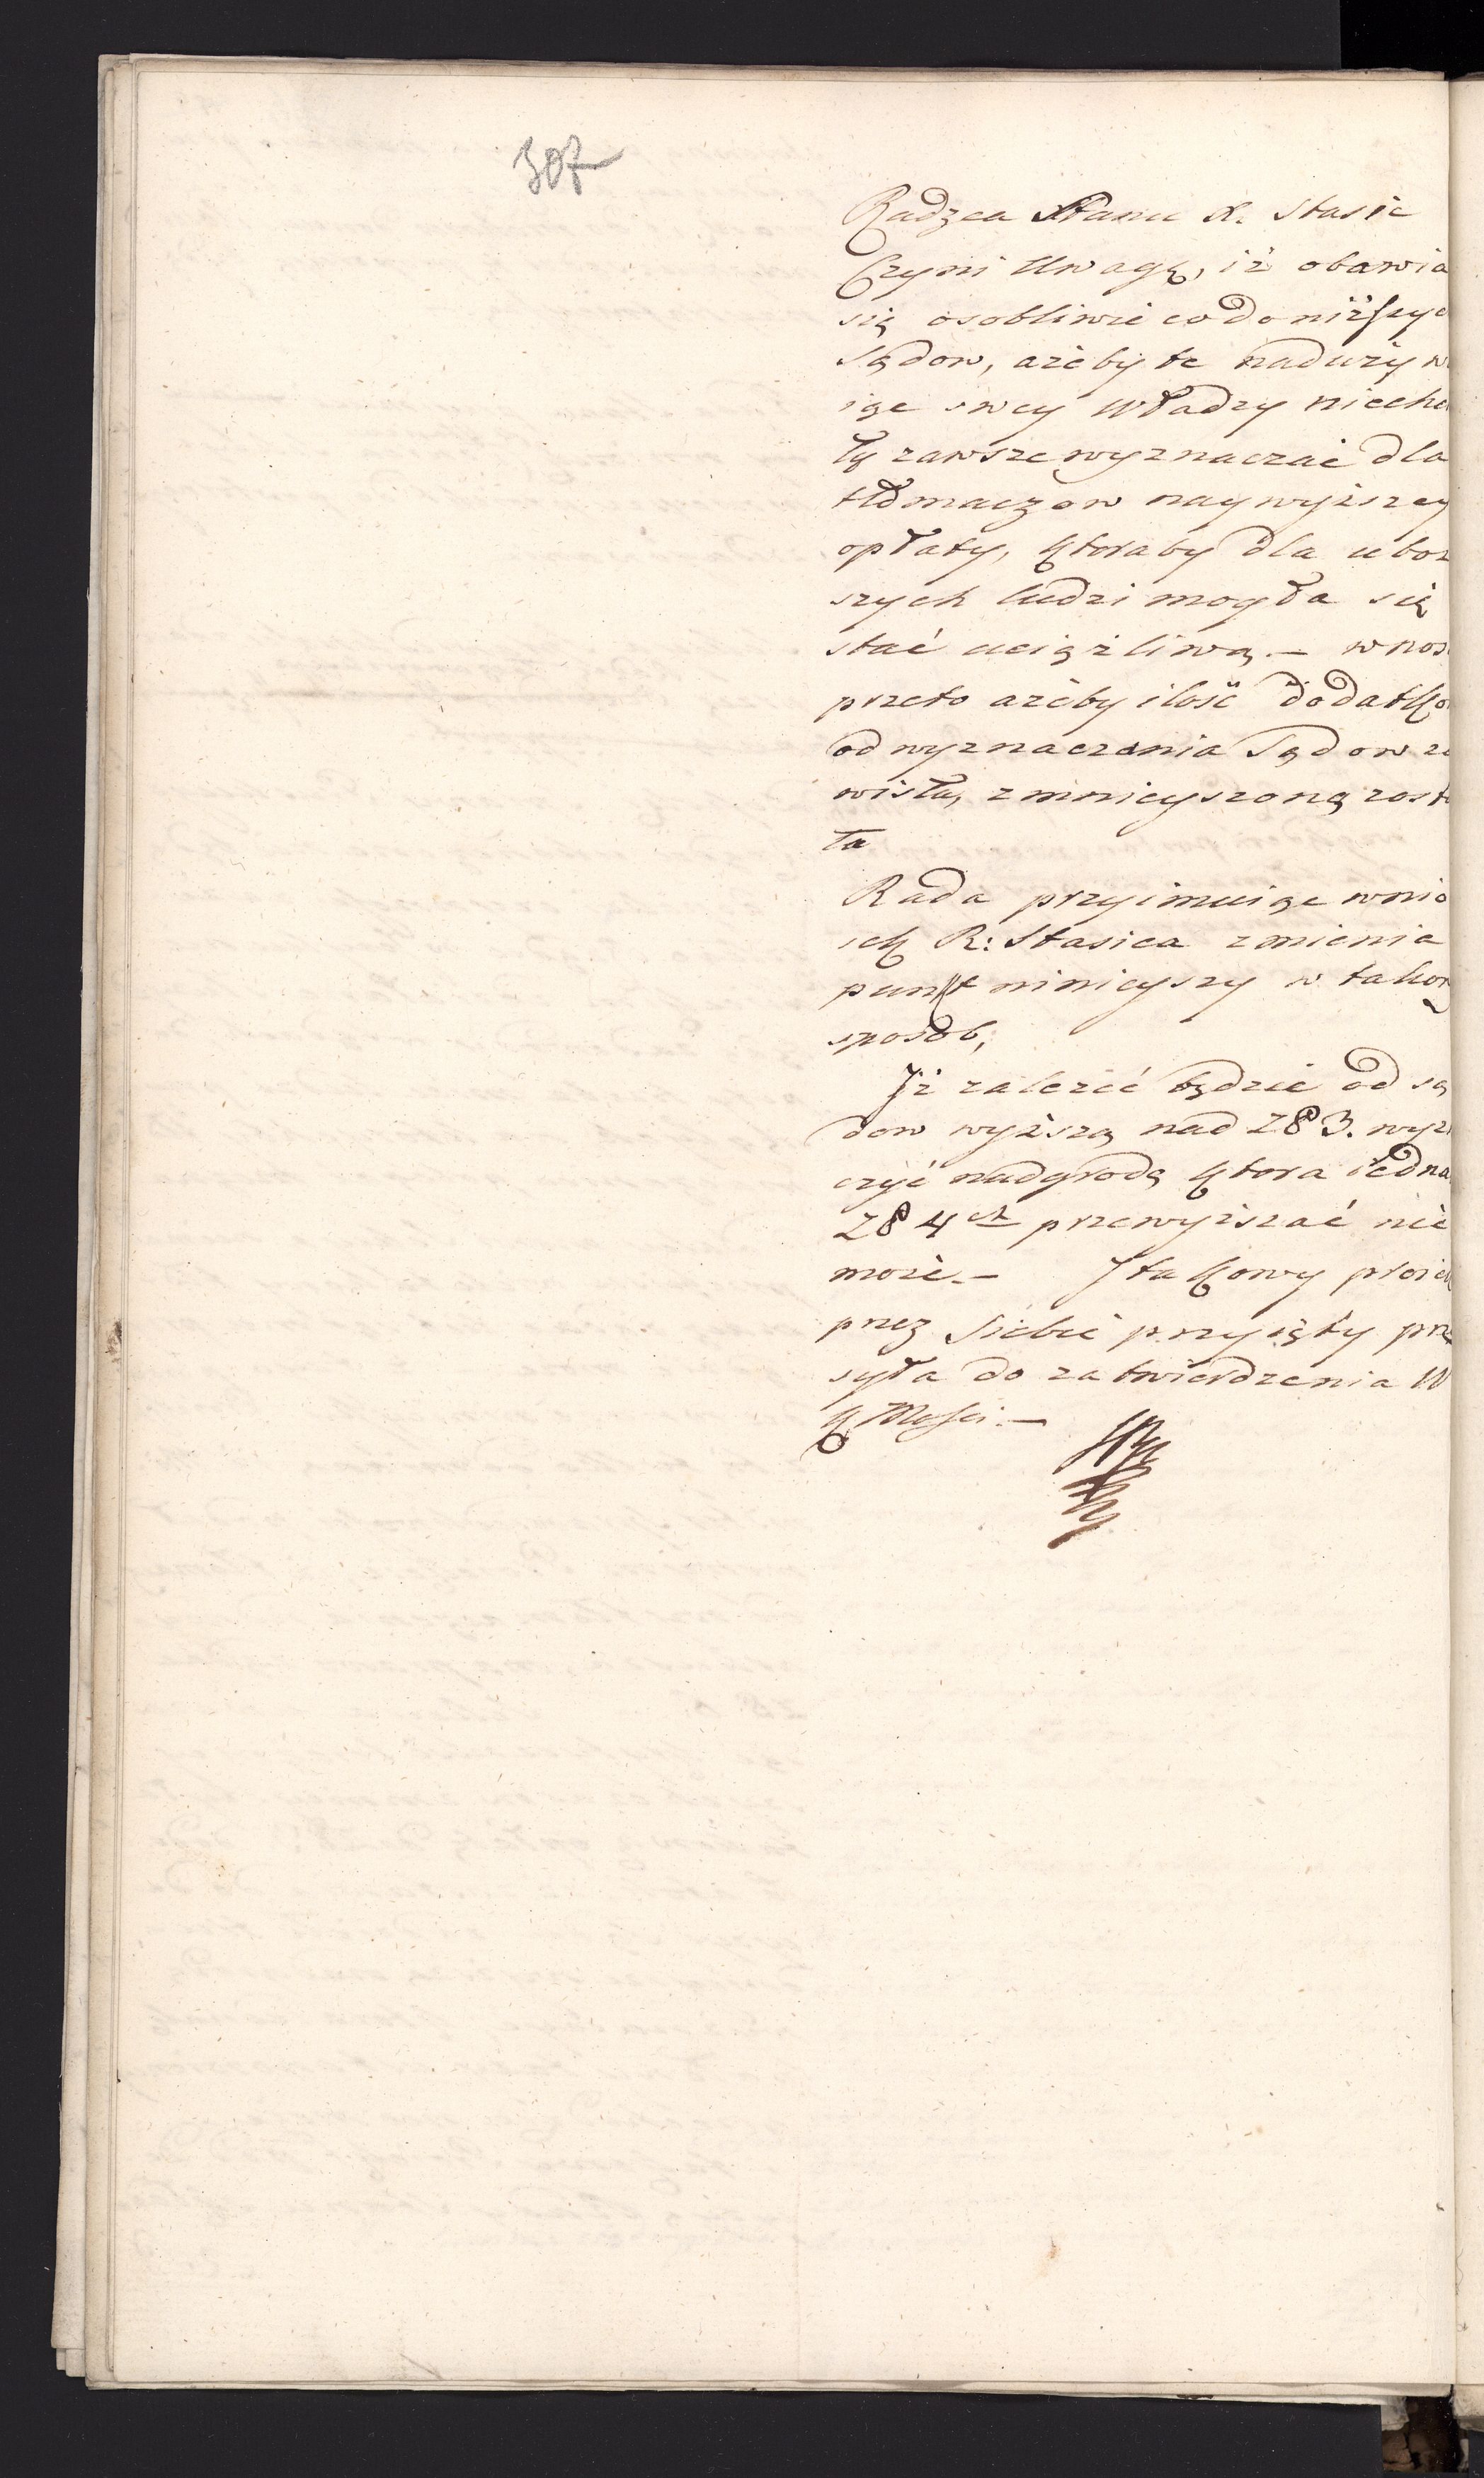 307
Radzca Stanu X. Stasic
Czyni Uwagę, iż obawia
się osobliwie co do niższyc
Sądow, ażeby te nadużyw
iąc swey Władzy niechc
ły zawsze wyznaczać dla
tłómaczow naywyższey
opłaty, ktoraby dla uboż
szych ludzi mogła się
stać uciążliwą. – wnos
przeto ażeby ilość dodatko
od wyznaczenia Sądow za
wisła, zmnieyszoną zosta
ła
Rada przyimuiąc wnio
sek R: Stasica zmienia
punkt ninieyszy w takow
sposób,
Iż zależeć będzie od są
dow wyższą nad Zł 3. wyz
czyć nadgrodę ktora iedna
Zł 4ch przewyższać nie
może. – I takowy proiek
przez Siebie przyięty prze
syła do zatwierdzenia W
K Mości. –